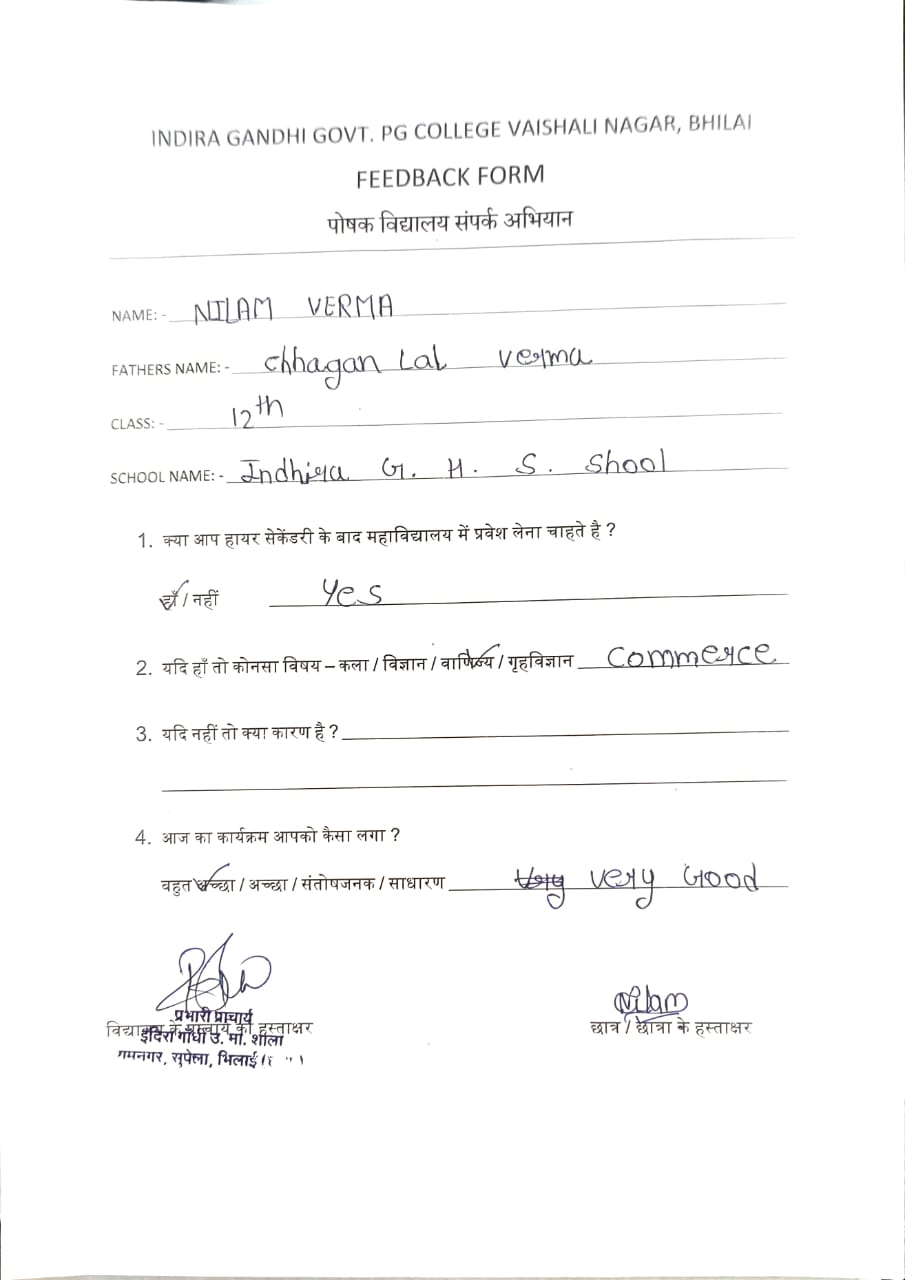 INDIRA GANDHI GOVT. PG COLLEGE VAISHALI NAGAR, BHILAI
FEEDBACK FORM
पोषक विद्यालय संपर्क अभियान
NAME: - NILAM VERMA
FATHERS NAME: - Chhagan Lal Verma
CLASS: - 12th
SCHOOL NAME: - Indhira G. H. S. Shool
1. क्या आप हायर सेकेंडरी के बाद महाविद्यालय में प्रवेश लेना चाहते है ?
हाँ / नहीं Yes
2. यदि हाँ तो कोनसा विषय – कला / विज्ञान / वाणिज्य / गृहविज्ञान Commerce
3. यदि नहीं तो क्या कारण है ?
4. आज का कार्यक्रम आपको कैसा लगा ?
बहुत अच्छा / अच्छा / संतोषजनक / साधारण very Good
Nilam
प्रभारी प्राचार्य
विद्यालय के प्राचार्य के हस्ताक्षर छात्र / छात्रा के हस्ताक्षर
इंदिरा गांधी उ. मा. शाला
रामनगर, सुपेला, भिलाई